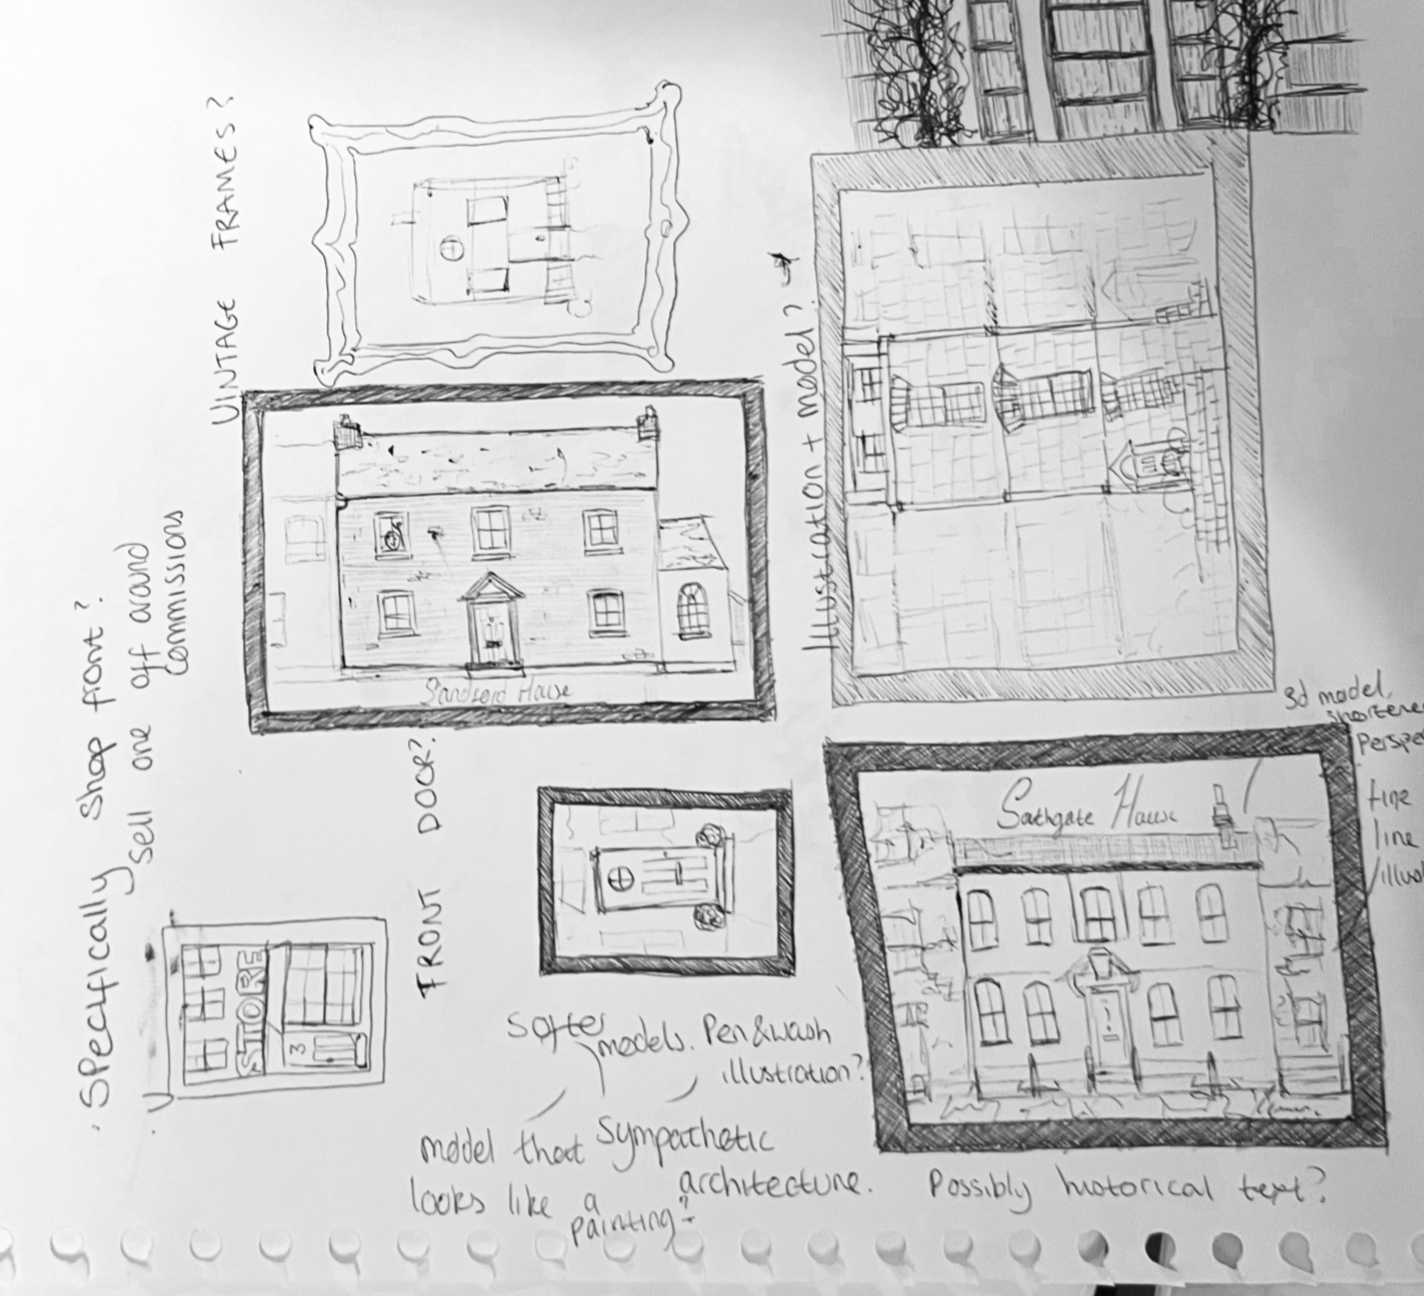 VINTAGE FRAMES?
Sandford House
Illustration + model?
. Specifically shop front?
sell one off around
commissions
STORE
3
FRONT DOOR?
Softer
models. Pen & wash
illustration?
model that
looks like a
painting?
Sympathetic
architecture.
3d model,
Southgate House
fine
line
Possibly historical text?